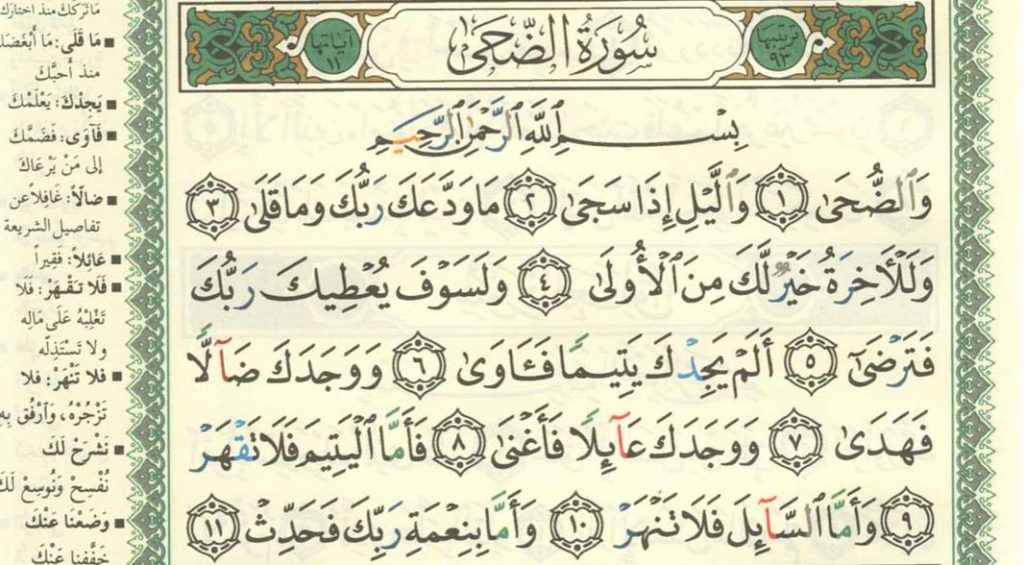 ترتيبها ٩٣
سُورَةُ الضُّحَىٰ
آياتها ١١
بِسْمِ ٱللَّهِ ٱلرَّحْمَٰنِ ٱلرَّحِيمِ
وَٱلضُّحَىٰ ١ وَٱلَّيْلِ إِذَا سَجَىٰ ٢ مَا وَدَّعَكَ رَبُّكَ وَمَا قَلَىٰ ٣
وَلَلْأَخِرَةُ خَيْرٌ لَّكَ مِنَ ٱلْأُولَىٰ ٤ وَلَسَوْفَ يُعْطِيكَ رَبُّكَ
فَتَرْضَىٰٓ ٥ أَلَمْ يَجِدْكَ يَتِيمًا فَـَٔاوَىٰ ٦ وَوَجَدَكَ ضَآلًّا
فَهَدَىٰ ٧ وَوَجَدَكَ عَآئِلًا فَأَغْنَىٰ ٨ فَأَمَّا ٱلْيَتِيمَ فَلَا تَقْهَرْ
٩ وَأَمَّا ٱلسَّآئِلَ فَلَا تَنْهَرْ ١٠ وَأَمَّا بِنِعْمَةِ رَبِّكَ فَحَدِّثْ ١١
مَا تَرَكَكَ منذ اختارك
■ مَا قَلَى: مَا أَبْغَضَكَ
منذ أَحبَّكَ
■ يَجِدْكَ: يَعْلَمْكَ
■ فَآوَى: فَضَمَّكَ
إلى مَنْ يَرْعَاكَ
■ ضالاًّ: غَافِلاً عن
تفاصيل الشريعة
■ عَائِلاً: فَقِيراً
■ فَلَا تَقْهَرْ: فَلَا
تَغْلِبْهُ عَلَى مَالِهِ
ولا تَسْتَذِلَّه
■ فلا تَنْهَرْ: فلا
تَزْجُرْهُ، وَارْفُق بِهِ
■ نَشْرَحْ لَكَ
نُفْسِحْ وَنُوسِعْ لَكَ
■ وَضَعْنا عَنْكَ
خَفَّفْنا عَنْكَ